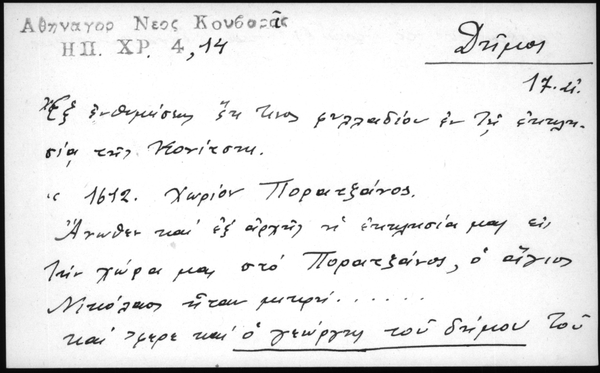 Αθηναγορ Νεος Κουβαρᾶς
ΗΠ. ΧΡ. 4, 14
Δῆμος
17. αἰ.
Ἐξ ἐνθυμήσεως ἔκ τινος φυλλαδίου ἐν τῇ ἐκκλη-
σίᾳ τῆς Κονίτσης.
" 1612. Χωρίον Πορατζάνος.
Ἄνωθεν καί ἐξ ἀρχῆς ἡ ἐκκλησία μας εἰς
τήν χώρα μας στό Πορατζάνος, ὁ ἅγιος
Νικόλαος ἦταν μικρή . . . . . .
καί ἔφερε καί ὁ γεώργης τοῦ δήμου τοῦ